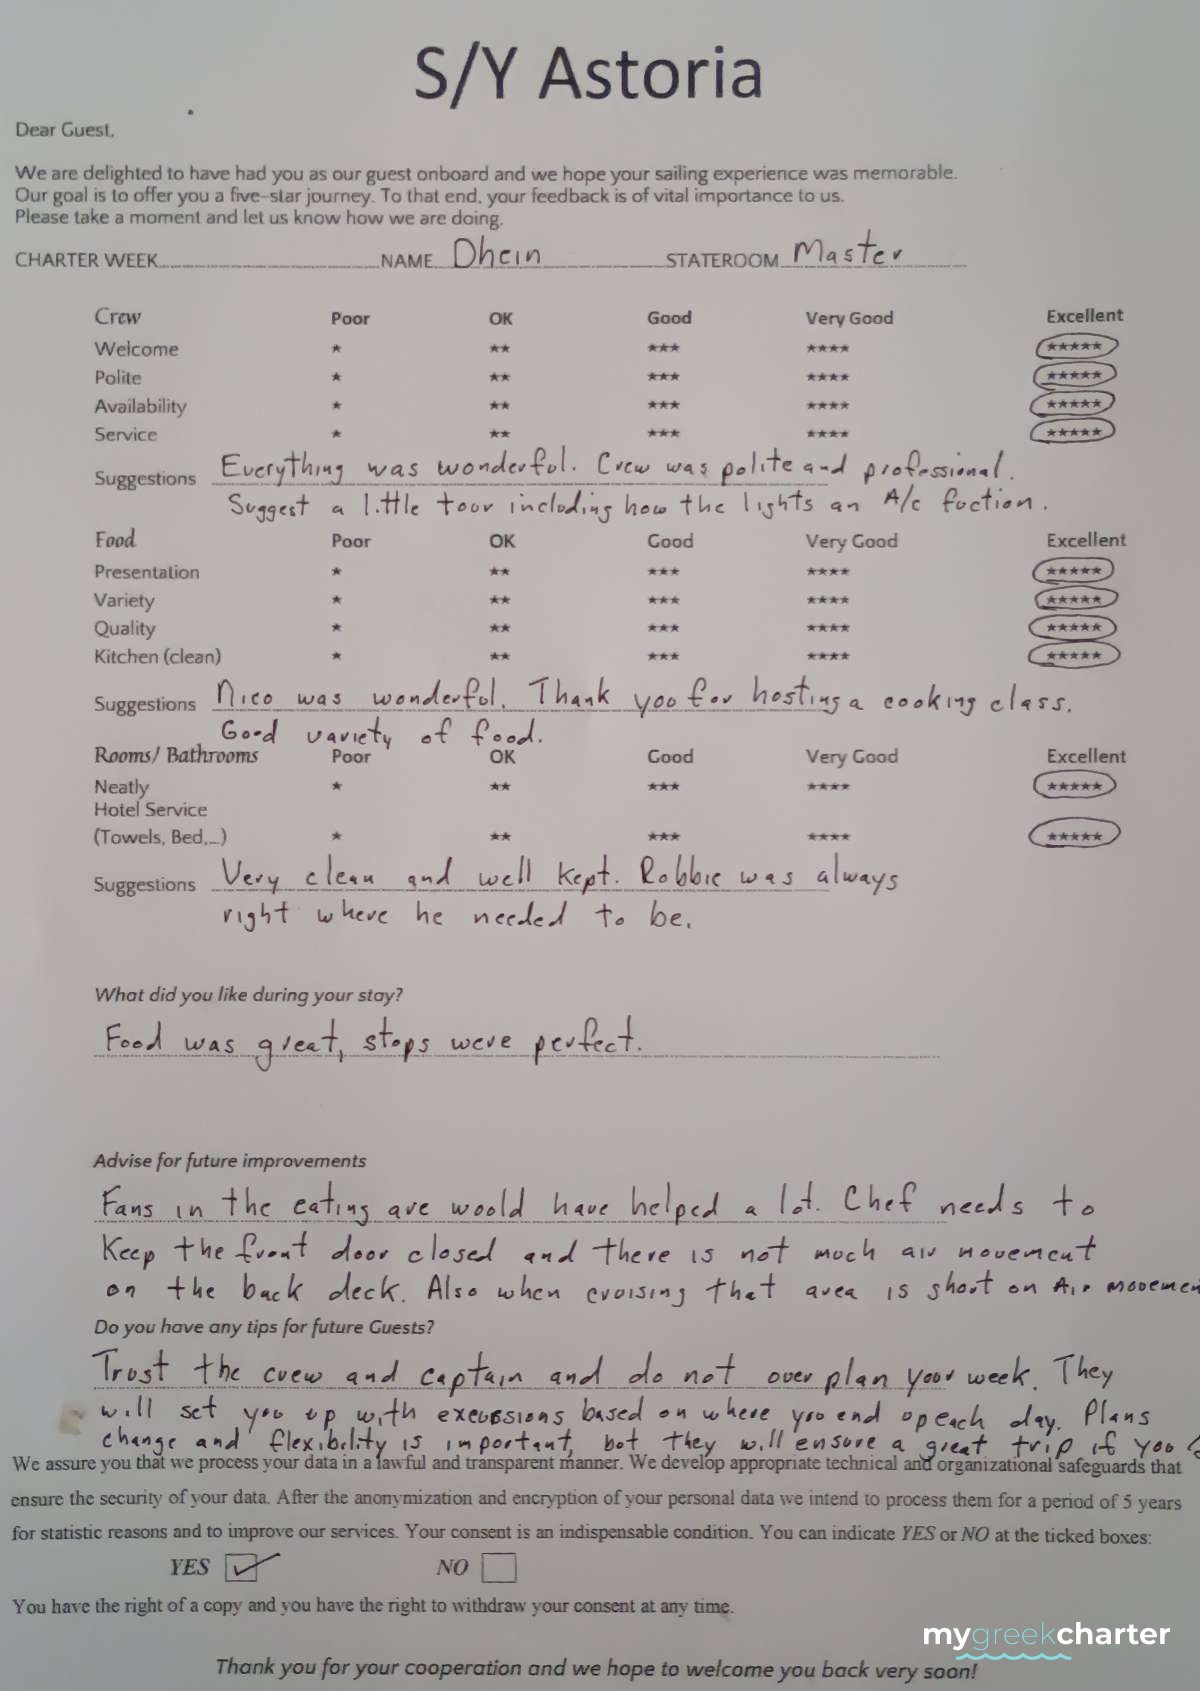 S/Y Astoria
Dear Guest,
We are delighted to have had you as our guest onboard and we hope your sailing experience was memorable.
Our goal is to offer you a five-star journey. To that end, your feedback is of vital importance to us.
Please take a moment and let us know how we are doing.
CHARTER WEEK NAME Dhein STATEROOM Master
Crew Poor OK Good Very Good Excellent
Welcome * ** *** **** *****
Polite * ** *** **** *****
Availability * ** *** **** *****
Service * ** *** **** *****
Suggestions Everything was wonderful. Crew was polite and professional.
Suggest a little tour including how the lights an A/c fuction.
Food Poor OK Good Very Good Excellent
Presentation * ** *** **** *****
Variety * ** *** **** *****
Quality * ** *** **** *****
Kitchen (clean) * ** *** **** *****
Suggestions Nico was wonderful. Thank you for hosting a cooking class.
Good variety of food.
Rooms/ Bathrooms Poor OK Good Very Good Excellent
Neatly * ** *** **** *****
Hotel Service
(Towels, Bed,...) * ** *** **** *****
Suggestions Very clean and well kept. Robbie was always
right where he needed to be.
What did you like during your stay?
Food was great, stops were perfect.
Advise for future improvements
Fans in the eating are would have helped a lot. Chef needs to
Keep the front door closed and there is not much air movement
on the back deck. Also when cruising that area is short on Air movemen
Do you have any tips for future Guests?
Trust the crew and captain and do not over plan your week. They
will set you up with excursions based on where you end up each day. Plans
change and flexibility is important, but they will ensure a great trip if you
We assure you that we process your data in a lawful and transparent manner. We develop appropriate technical and organizational safeguards that
ensure the security of your data. After the anonymization and encryption of your personal data we intend to process them for a period of 5 years
for statistic reasons and to improve our services. Your consent is an indispensable condition. You can indicate YES or NO at the ticked boxes:
YES NO
You have the right of a copy and you have the right to withdraw your consent at any time.
mygreekcharter
Thank you for your cooperation and we hope to welcome you back very soon!